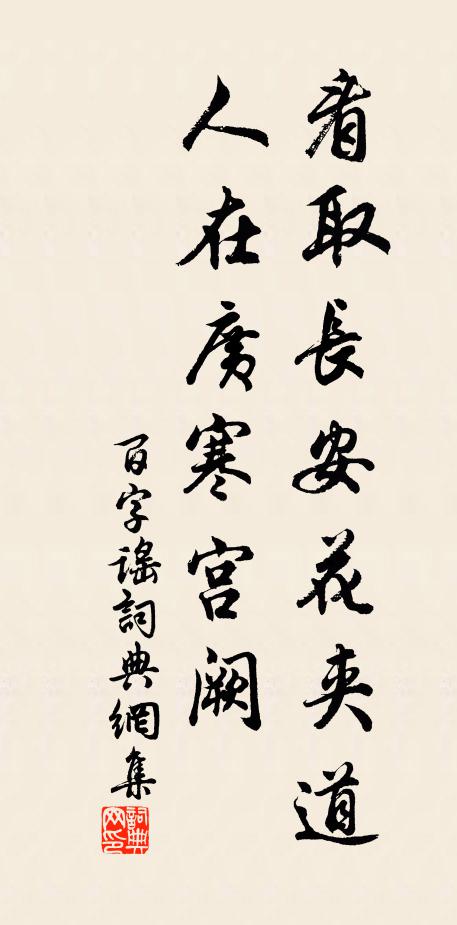 看取長安花夾道
人在廣寒宮闕
百字謠詞典網集
詞典網印